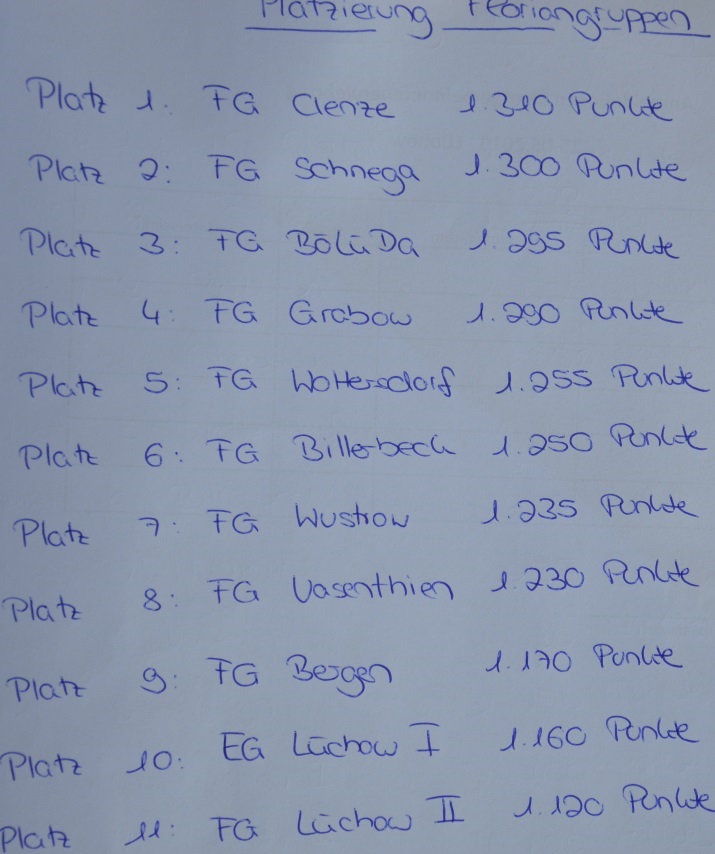 Platzierung Floriangruppen
Platz 1. FG Clenze 1.310 Punkte
Platz 2: FG Schnega 1.300 Punkte
Platz 3: FG BöLüDa 1.295 Punkte
Platz 4: FG Grabow 1.290 Punkte
Platz 5: FG Woltersdorf 1.255 Punkte
Platz 6: FG Billerbeck 1.250 Punkte
Platz 7: FG Wustrow 1.235 Punkte
Platz 8: FG Vasenthien 1.230 Punkte
Platz 9: FG Bergen 1.170 Punkte
Platz 10: EG Lüchow I 1.160 Punkte
Platz 11: FG Lüchow II 1.120 Punkte